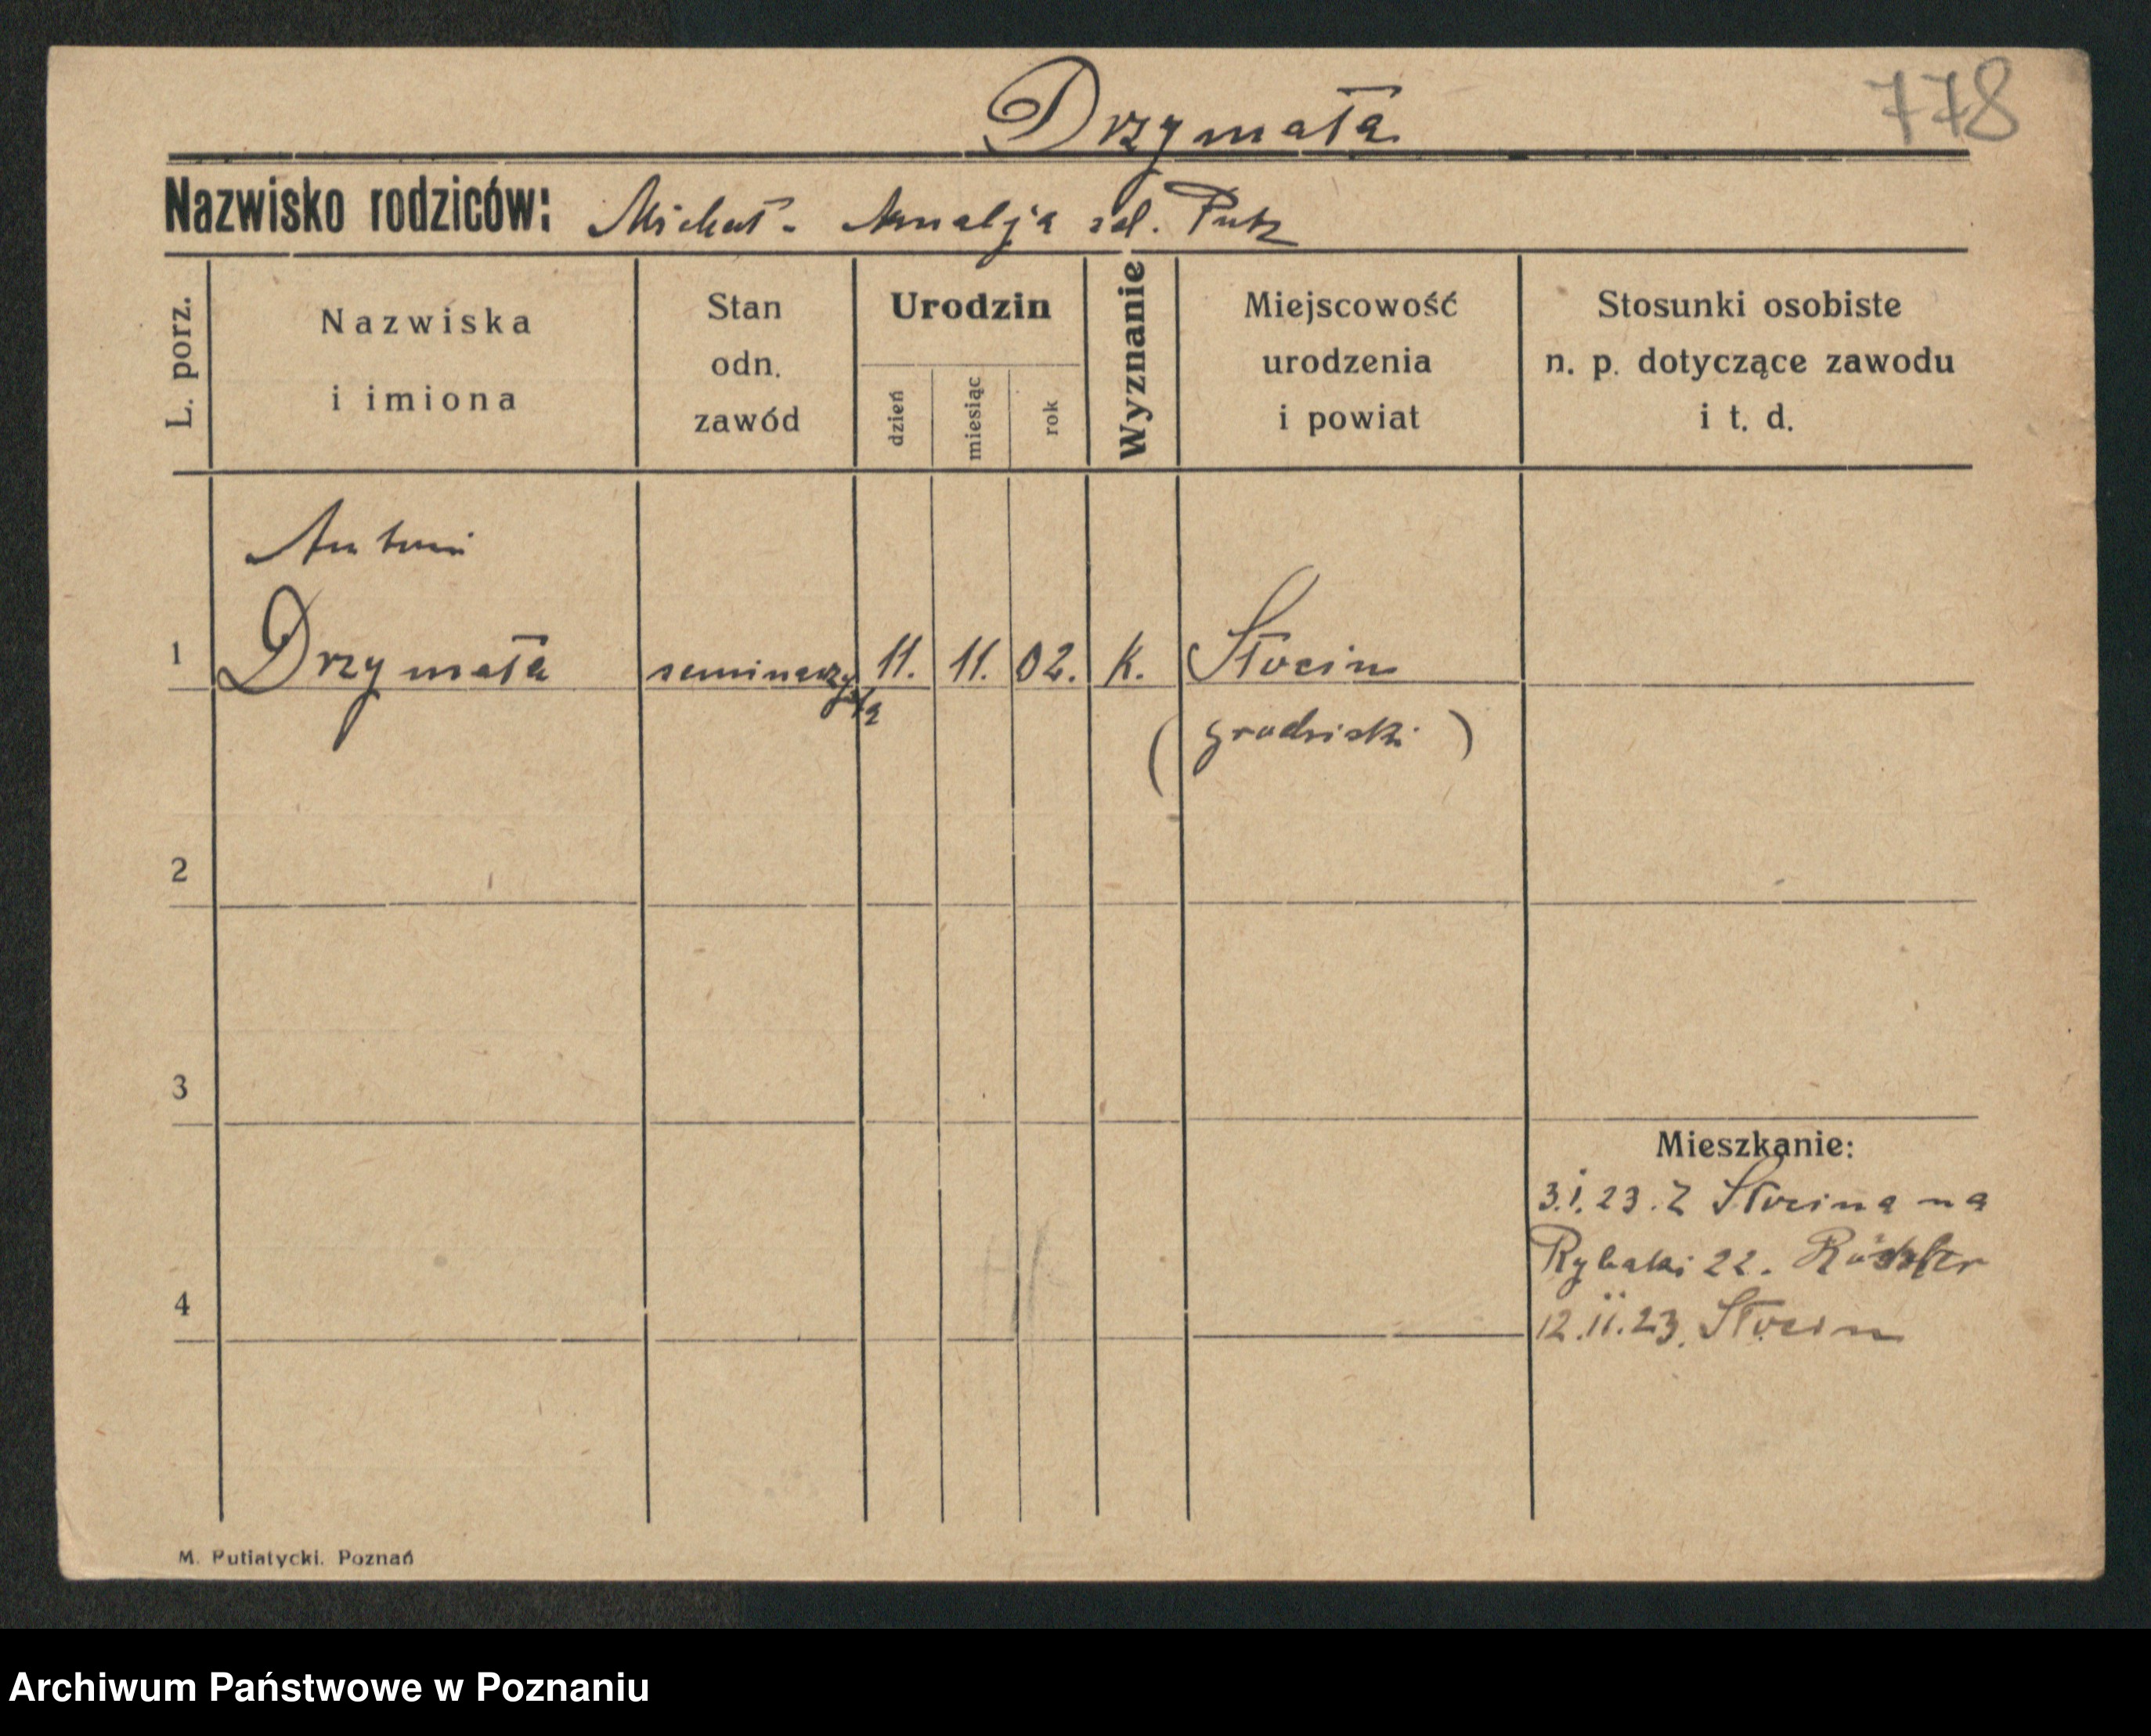 Drzymała
778
Nazwisko rodziców: Michał - Amalja zd. Putz
L. porz.
Nazwiska
i imiona
Stan
odn.
zawód
Urodzin
dzień
miesiąc
rok
Wyznanie
Miejscowość
urodzenia
i powiat
Stosunki osobiste
n. p. dotyczące zawodu
i t. d.
Antoni
1 Drzymała seminarzysta 11. 11. 02. K. Słocin
(grodziski)
2
3
Mieszkanie:
3.I.23. Z Słocina na
Rybaki 22.
4
12.II.23. Słocin
M. Putiatycki. Poznań
Archiwum Państwowe w Poznaniu